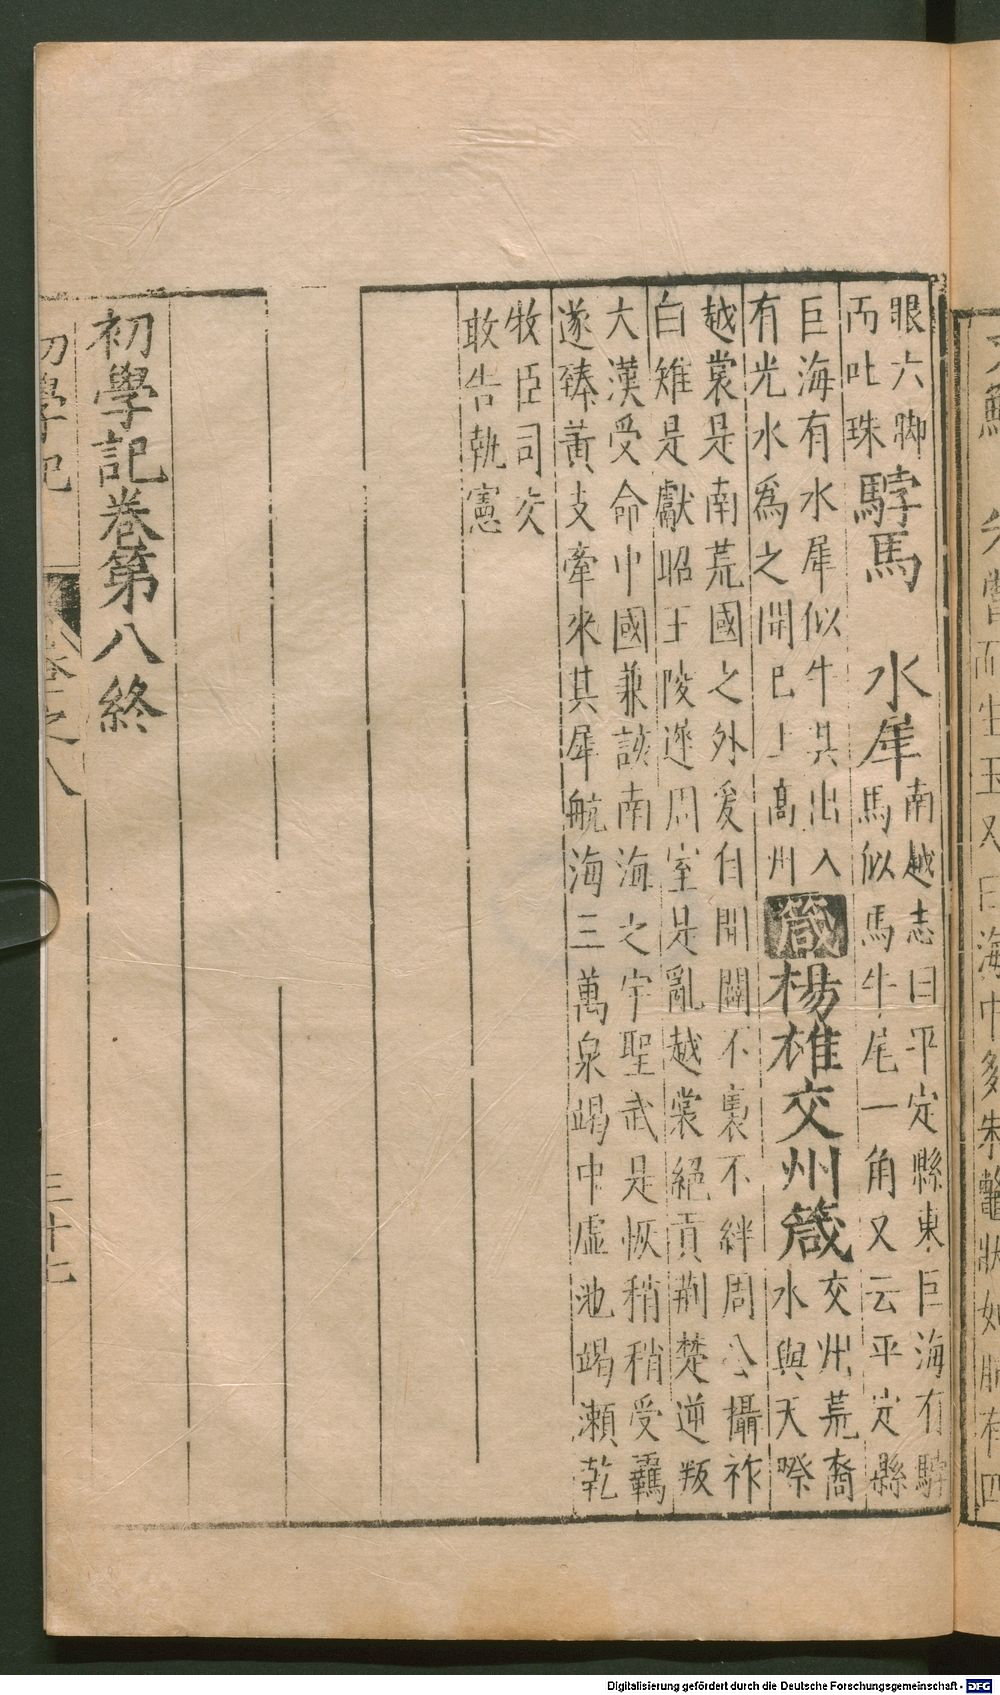 眼六脚
而吐珠
騂馬 水犀
南越志曰平定縣東巨海有騂
馬似馬牛尾一角又云平定縣
巨海有水犀似牛其出入
有光水爲之開已上高州
箴
楊雄交州箴
交州荒裔
水與天際
越裳是南荒國之外爰自開闢不裏不絆周公攝祚
白雉是獻昭王陵遲周室是亂越裳絕貢荆楚逆叛
大漢受命中國兼該南海之宇聖武是恢稍稍受羈
遂臻黄支牽來其犀航海三萬泉竭中虛池竭瀨乾
牧臣司交
敢告執憲
初學記卷第八終
初學記
卷之八
三十七
嘗而生玉又曰海中多朱鼈狀如肺有四
Digitalisierung gefördert durch die Deutsche Forschungsgemeinschaft - DFG